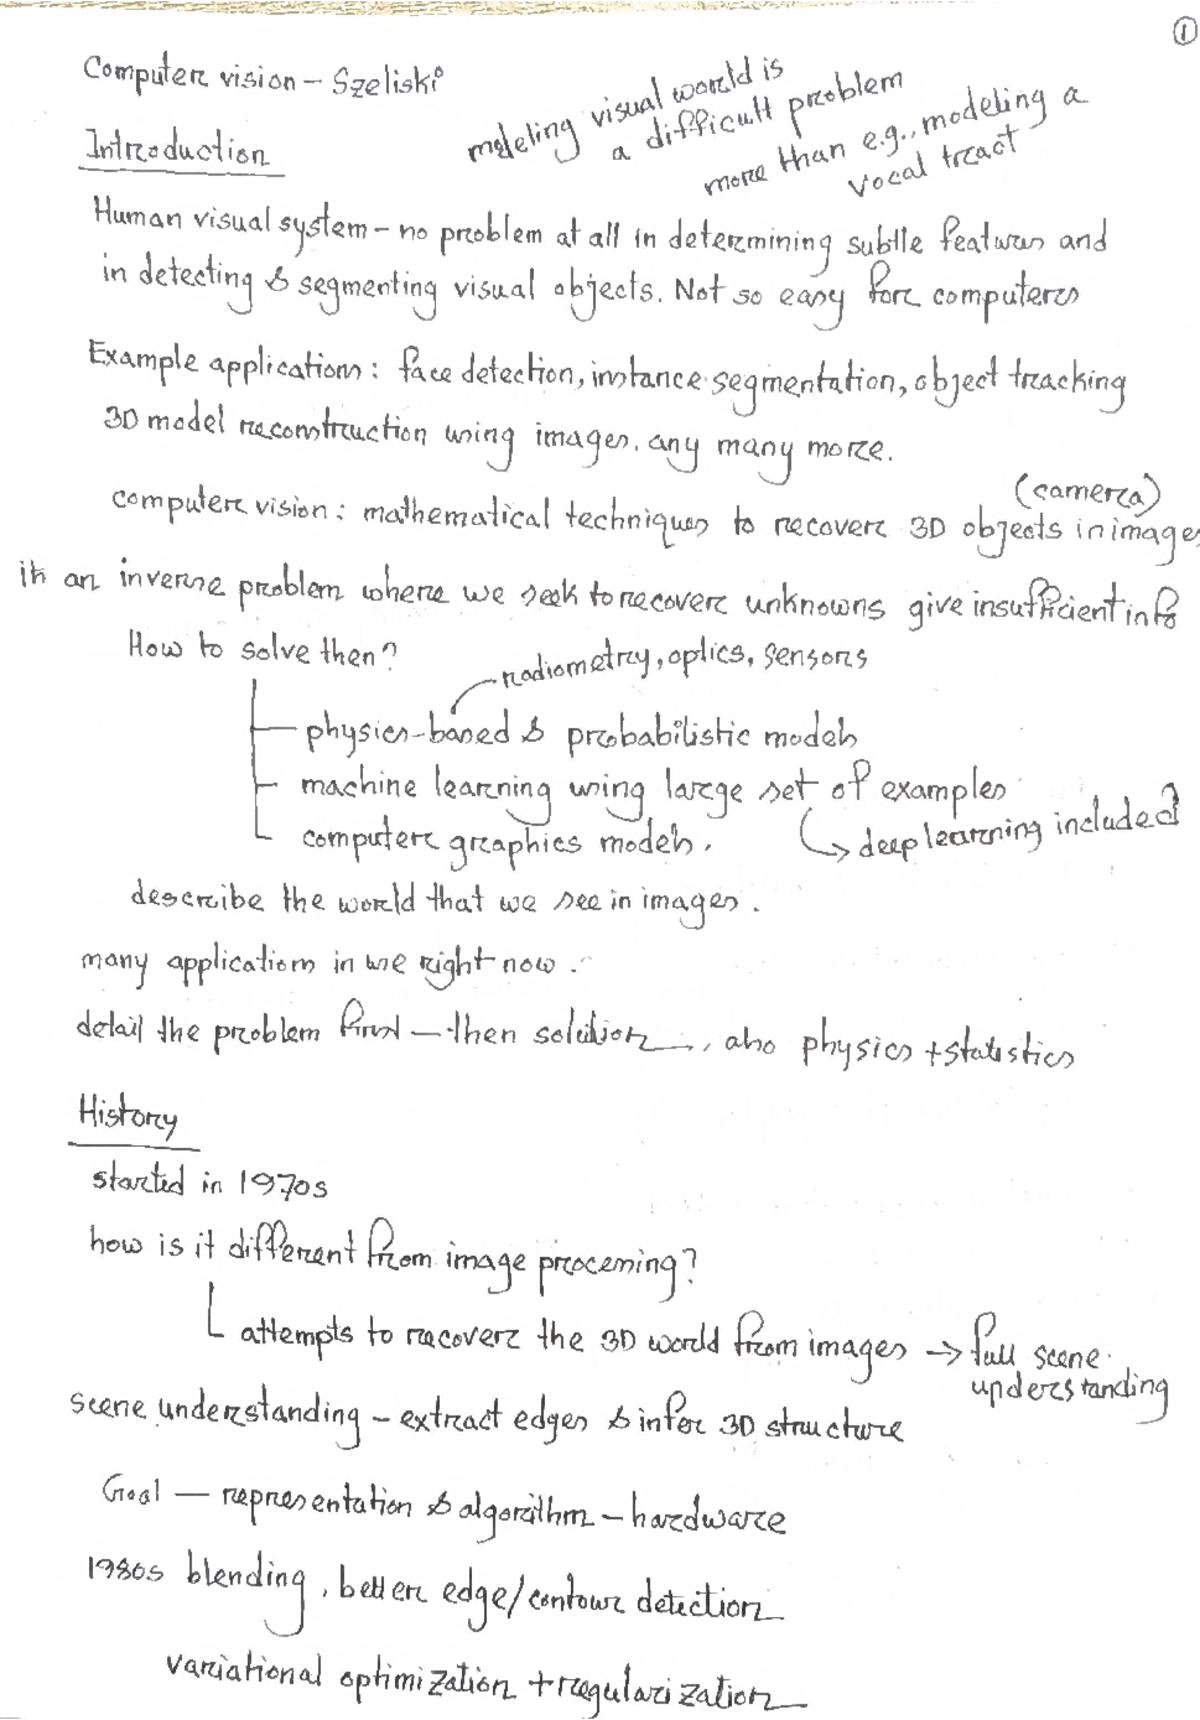 ①
Computer vision – Szeliski
modeling visual world is
a difficult problem
more than e.g., modeling a
vocal tract
Introduction
Human visual system – no problem at all in determining subtle features and
in detecting & segmenting visual objects. Not so easy for computers
Example applications: face detection, instance segmentation, object tracking
3D model reconstruction using images. any many more.
(camera)
computer vision: mathematical techniques to recover 3D objects in images
its an inverse problem where we seek to recover unknowns give insufficient info
How to solve then?
radiometry, optics, sensors
physics-based & probabilistic models
machine learning using large set of examples
deep learning included
computer graphics models.
describe the world that we see in images.
many applications in use right now.
detail the problem first – then solution, also physics + statistics
History
started in 1970s
how is it different from image processing?
attempts to recover the 3D world from images → full scene
understanding
scene understanding – extract edges & infer 3D structure
Goal – representation & algorithm – hardware
1980s blending, better edge/contour detection
variational optimization + regularization